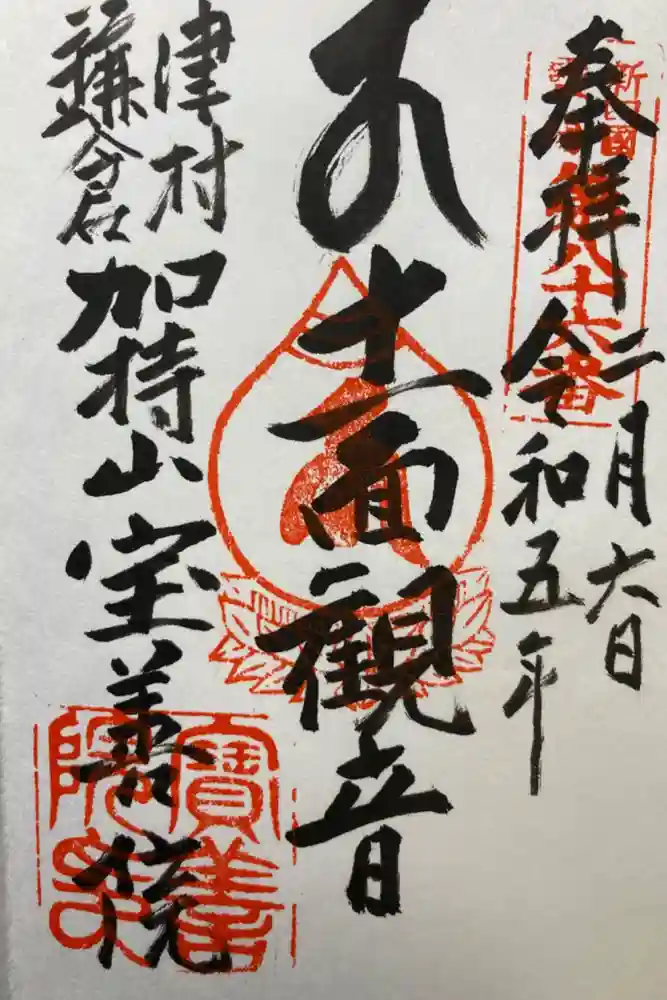 奉拝 令和五年
二月六日
新四國
八十六番
十一面觀音
津村
鎌倉
加持山宝善院
寶善
院印